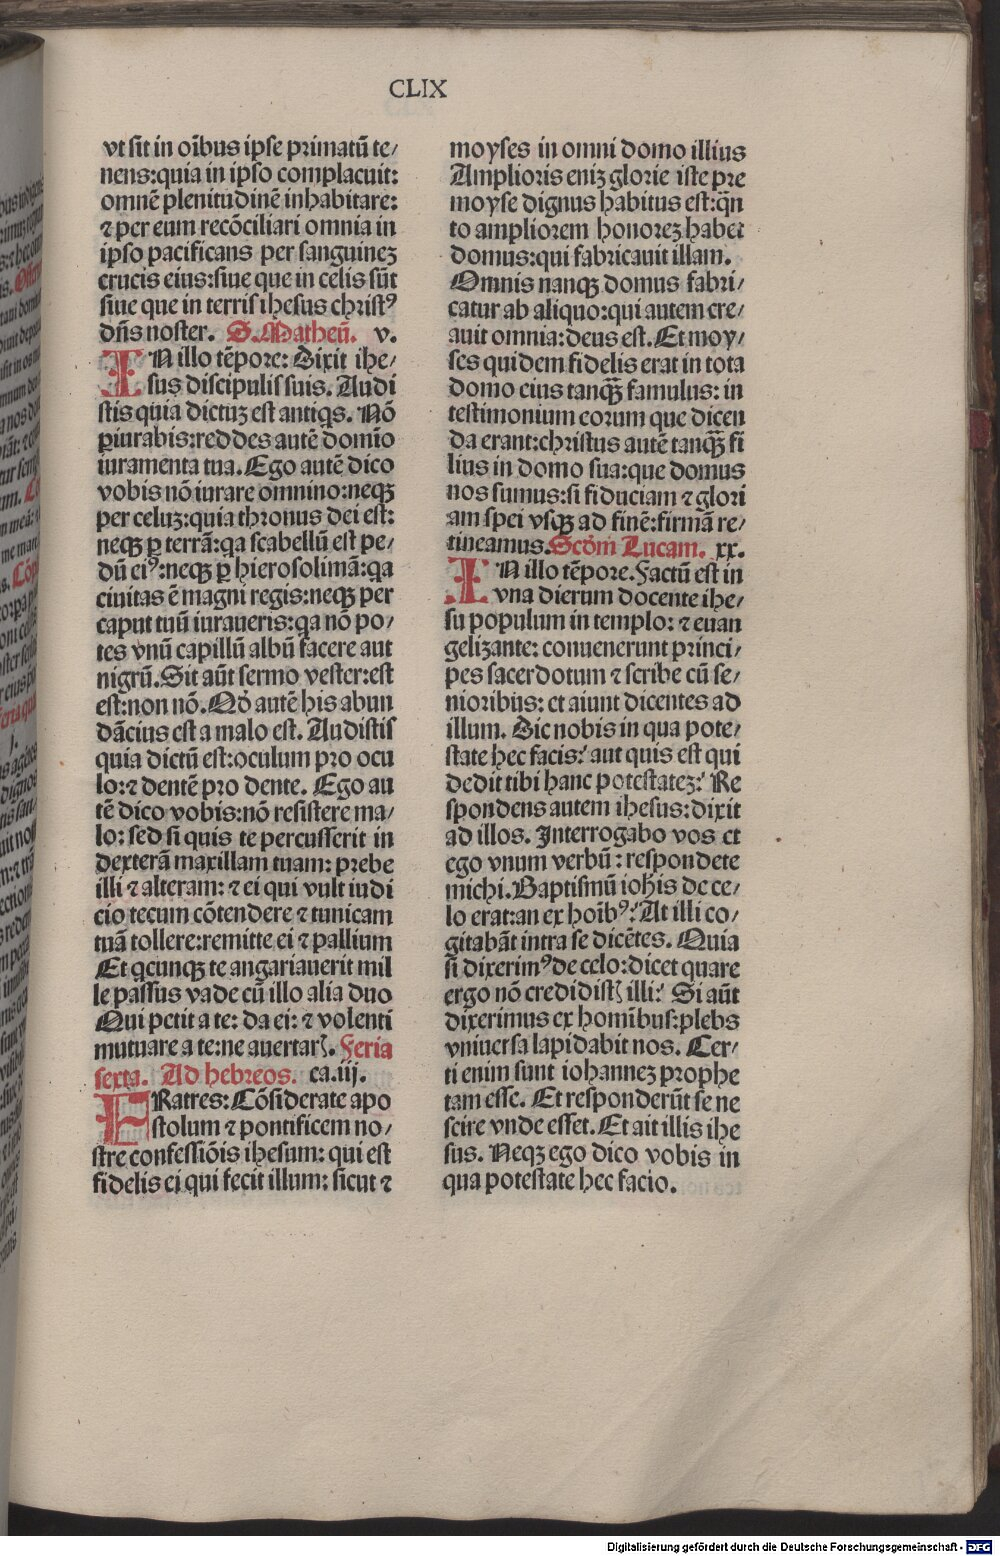 CLIX
vt sit in oĩbus ipse primatũ te/
nens:quia in ipso complacuit:
omnẽ plenitudinẽ inhabitare:
⁊ per eum recõciliari omnia in
ipso pacificans per sanguineꝫ
crucis eius:siue que in celis sũt
siue que in terris ihesus christꝰ
dñs noster. S. Matheũ. v.
IN illo tẽpore: Dixit ihe/
sus discipulis suis. Audi
stis quia dictuꝫ est antiqs. Nõ
ꝑiurabis:reddes autẽ domĩo
iuramenta tua. Ego autẽ dico
vobis nõ iurare omnino:neqꝫ
per celuꝫ:quia thronus dei est:
neqꝫ ꝑ terrã:qa scabellũ est pe/
dũ eiꝰ:neqꝫ ꝑ hierosolimã:qa
ciuitas ẽ magni regis:neqꝫ per
caput tuũ iuraueris:qa nõ po/
tes vnũ capillũ albũ facere aut
nigrũ. Sit aũt sermo vester:est
est:non nõ. Qd̛ autẽ his abun
dãcius est a malo est. Audistis
quia dictũ est:oculum pro ocu
lo:⁊ dentẽ pro dente. Ego au
tẽ dico vobis:nõ resistere ma/
lo: sed si quis te percusserit in
dexterã maxillam tuam: prebe
illi ⁊ alteram: ⁊ ei qui vult iudi
cio tecum cõtendere ⁊ tunicam
tuã tollere:remitte ei ⁊ pallium
Et qcunqꝫ te angariauerit mil
le passus vade cũ illo alia duo
Qui petit a te: da ei: ⁊ volenti
mutuare a te:ne auertarꝭ. Feria
sexta. Ad hebreos. ca.iij.
FRatres: Cõsiderate apo
stolum ⁊ pontificem no/
stre confessiõis ihesum: qui est
fidelis ei qui fecit illum: sicut ⁊
moyses in omni domo illius
Amplioris eniꝫ glorie iste pre
moyse dignus habitus est:qñ
to ampliorem honoreꝫ habet
domus:qui fabricauit illam.
Omnis nanqꝫ domus fabri/
catur ab aliquo:qui autem cre/
auit omnia:deus est. Et moy/
ses quidem fidelis erat in tota
domo eius tanqꝫ̃ famulus: in
testimonium eorum que dicen
da erant:christus autẽ tanqꝫ̃ fi
lius in domo sua:que domus
nos sumus:si fiduciam ⁊ glori
am spei vsqꝫ ad finẽ:firmã re/
tineamus. Scd̛m Lucam. xx.
IN illo tẽpore. Factũ est in
vna dierum docente ihe/
su populum in templo: ⁊ euan
gelizante: conuenerunt princi/
pes sacerdotum ⁊ scribe cũ se/
nioribus: et aiunt dicentes ad
illum. Dic nobis in qua pote/
state hec facis? aut quis est qui
dedit tibi hanc potestateꝫ? Re
spondens autem ihesus: dixit
ad illos. Interrogabo vos et
ego vnum verbũ : respondete
michi. Baptismũ iohis de ce/
lo erat:an ex hoĩbꝰ? At illi co/
gitabãt intra se dicẽtes. Quia
si dixerimꝰ de celo:dicet quare
ergo nõ credidistꝭ illi? Si aũt
dixerimus ex homĩbus:plebs
vniuersa lapidabit nos. Cer/
ti enim sunt iohanneꝫ prophe
tam esse. Et responderũt se ne
scire vnde esset. Et ait illis ihe
sus. Neqꝫ ego dico vobis in
qua potestate hec facio.
Digitalisierung gefördert durch die Deutsche Forschungsgemeinschaft - DFG